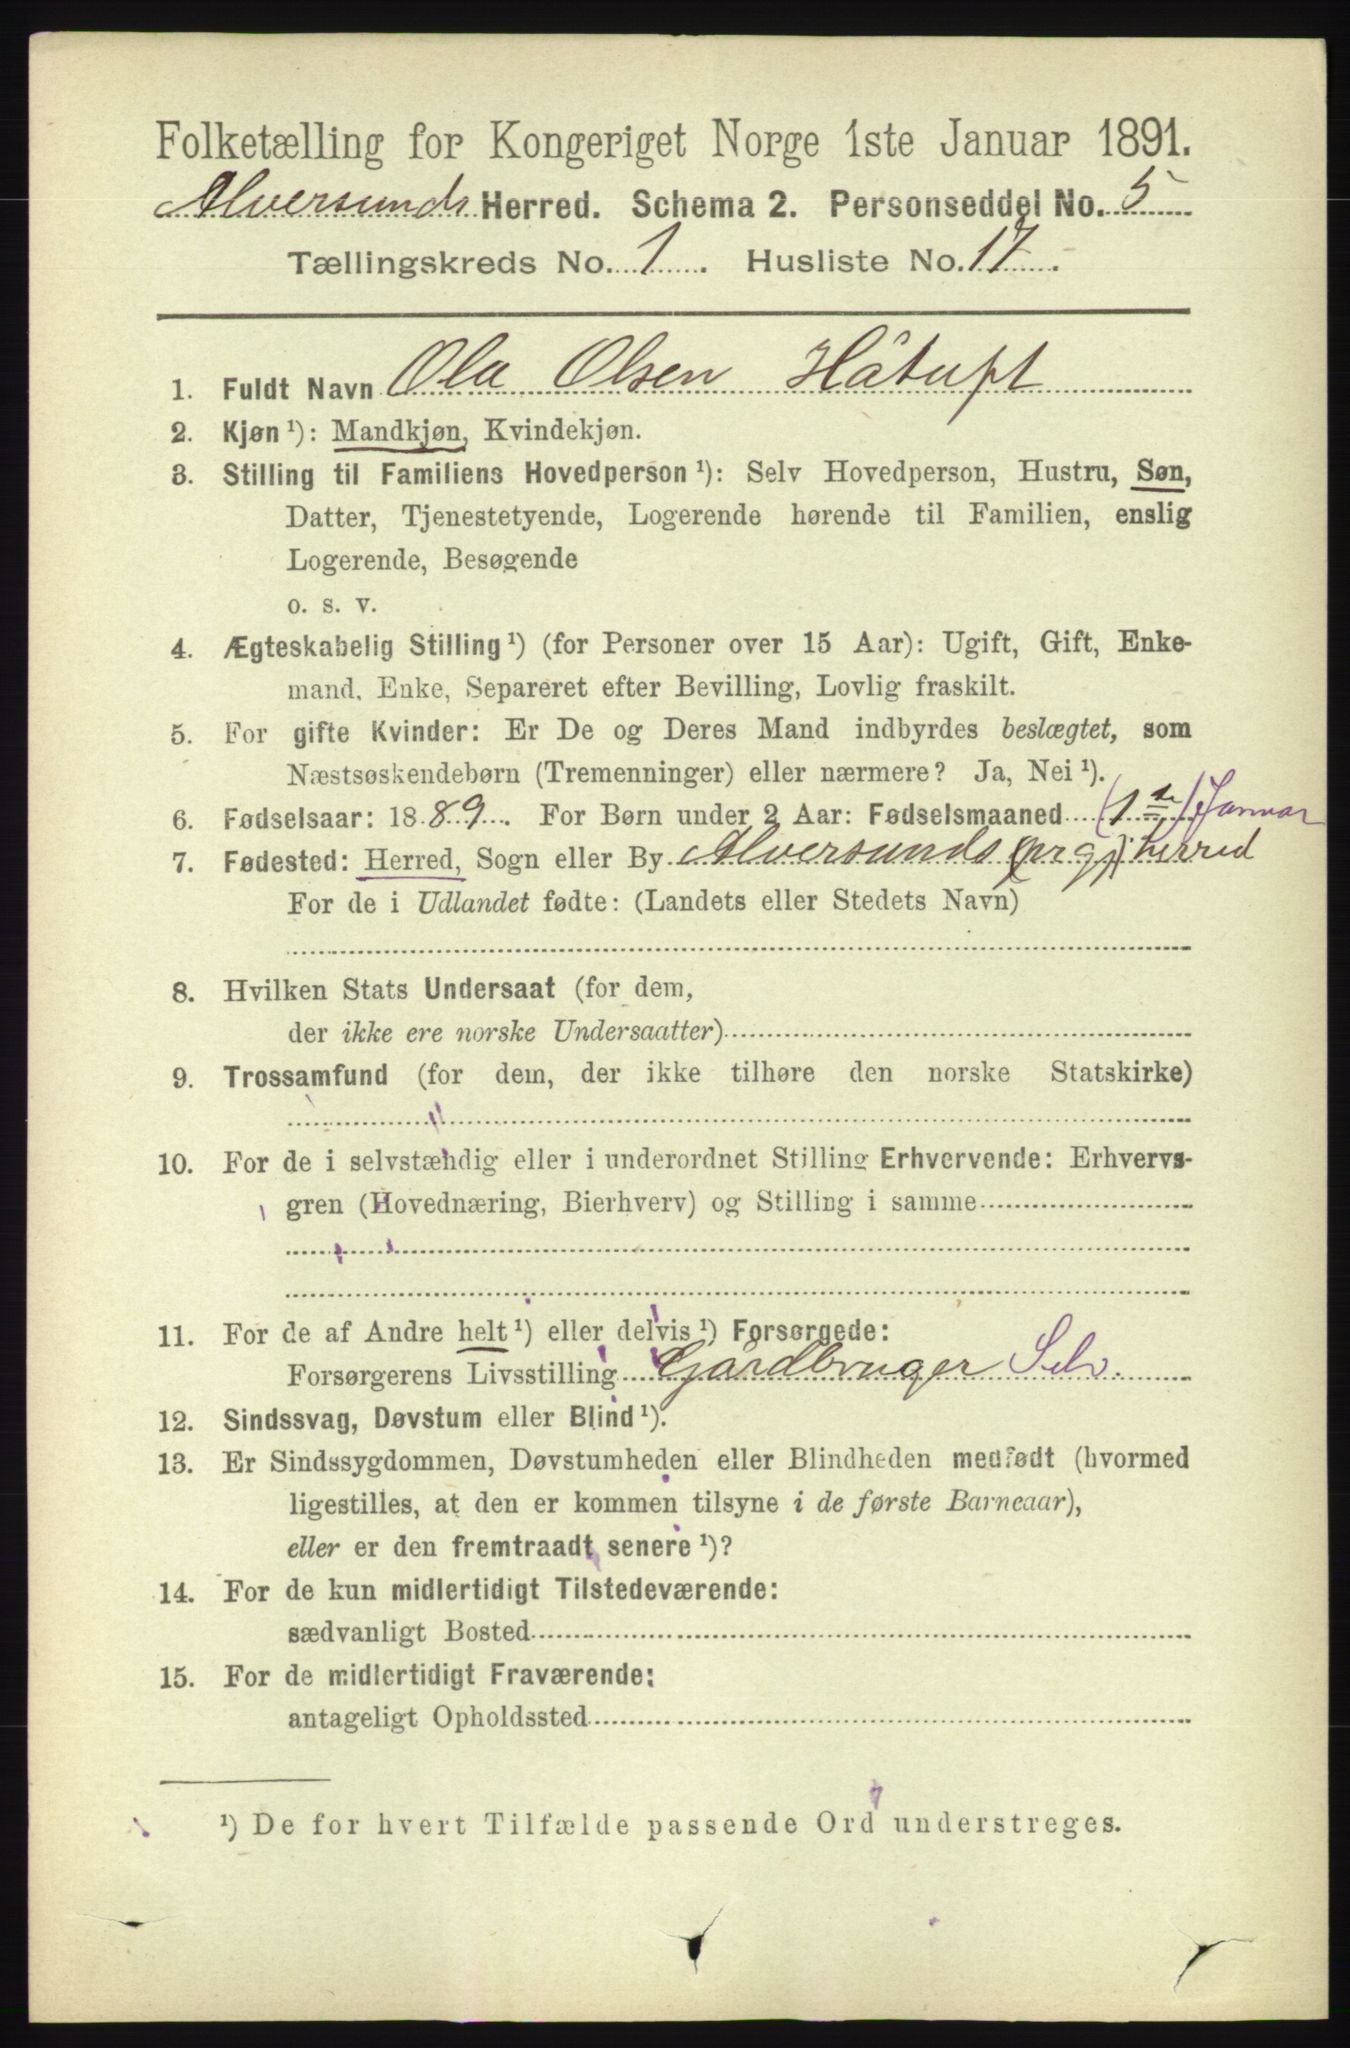 Folketælling for Kongeriget Norge 1ste Januar 1891.
Alversunds Herred. Schema 2. Personseddel No. 5
Tællingskreds No. 1. Husliste No. 17.
1. Fuldt Navn Ola Olsen Håtuft
2. Kjøn ¹): Mandkjøn, Kvindekjøn.
3. Stilling til Familiens Hovedperson ¹): Selv Hovedperson, Hustru, Søn,
Datter, Tjenestetyende, Logerende hørende til Familien, enslig
Logerende, Besøgende
o. s. v.
4. Ægteskabelig Stilling ¹) (for Personer over 15 Aar): Ugift, Gift, Enke-
mand, Enke, Separeret efter Bevilling, Lovlig fraskilt.
5. For gifte Kvinder: Er De og Deres Mand indbyrdes beslægtet, som
Næstsøskendebørn (Tremenninger) eller nærmere? Ja, Nei ¹).
6. Fødselsaar: 1889. For Børn under 2 Aar: Fødselsmaaned (1ste) Januar
7. Fødested: Herred, Sogn eller By Alversunds (prgj). herred
For de i Udlandet fødte: (Landets eller Stedets Navn)
8. Hvilken Stats Undersaat (for dem,
der ikke ere norske Undersaatter)
9. Trossamfund (for dem, der ikke tilhøre den norske Statskirke)
10. For de i selvstændig eller i underordnet Stilling Erhvervende: Erhvervs-
gren (Hovednæring, Bierhverv) og Stilling i samme
11. For de af Andre helt ¹) eller delvis ¹) Forsørgede:
Forsørgerens Livsstilling Gjårdbruger Selv.
12. Sindssvag, Døvstum eller Blind ¹).
13. Er Sindssygdommen, Døvstumheden eller Blindheden medfødt (hvormed
ligestilles, at den er kommen tilsyne i de første Barneaar),
eller er den fremtraadt senere ¹)?
14. For de kun midlertidigt Tilstedeværende:
sædvanligt Bosted
15. For de midlertidigt Fraværende:
antageligt Opholdssted
¹) De for hvert Tilfælde passende Ord understreges.